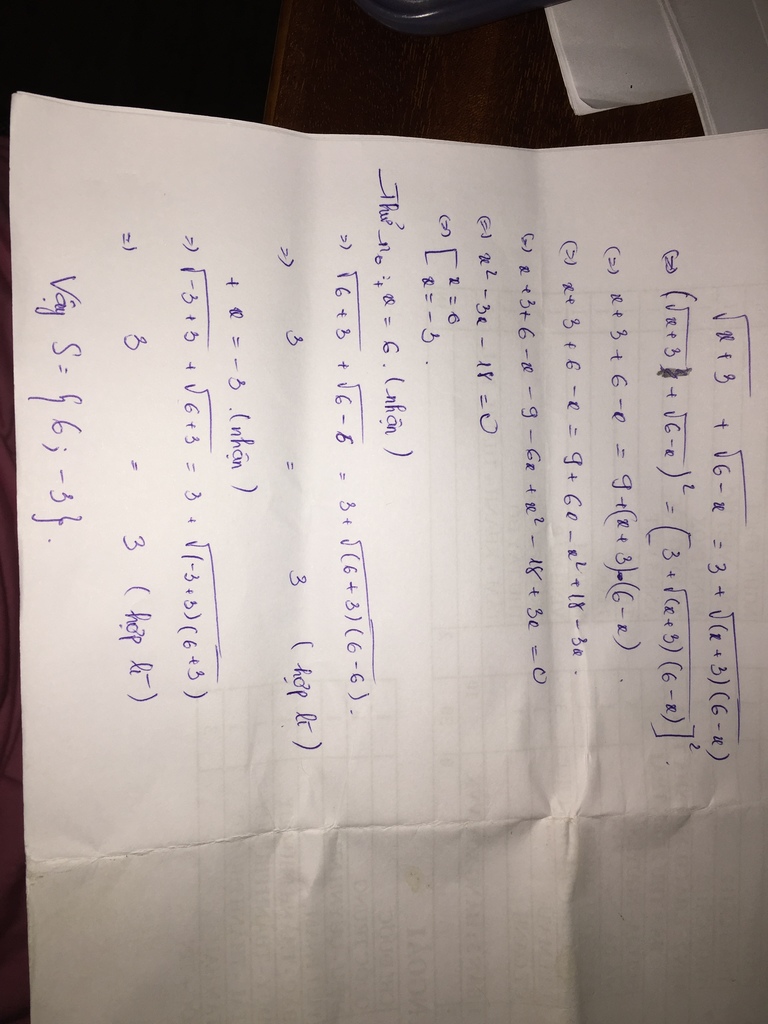 √(x+3) + √(6-x) = 3 + √((x+3)(6-x))
(=) (√(x+3) + √(6-x))² = (3 + √((x+3)(6-x))]².
(=) x+3+6-x = 9+(x+3)•(6-x).
(=) x+3+6-x = 9+6x-x²+18-3x.
(=) x+3+6-x-9-6x+x²-18+3x=0
(=) x²-3x-18=0
(=) [ x=6
x=-3.
Thử no: + x=6. (nhận)
=) √(6+3) + √(6-6) = 3 + √((6+3)(6-6)).
=) 3 = 3 (hợp lí)
+ x=-3. (nhận)
=) √(-3+3) + √(6+3) = 3 + √((-3+3)(6+3))
=) 3 = 3 (hợp lí)
Vậy S={6;-3}.